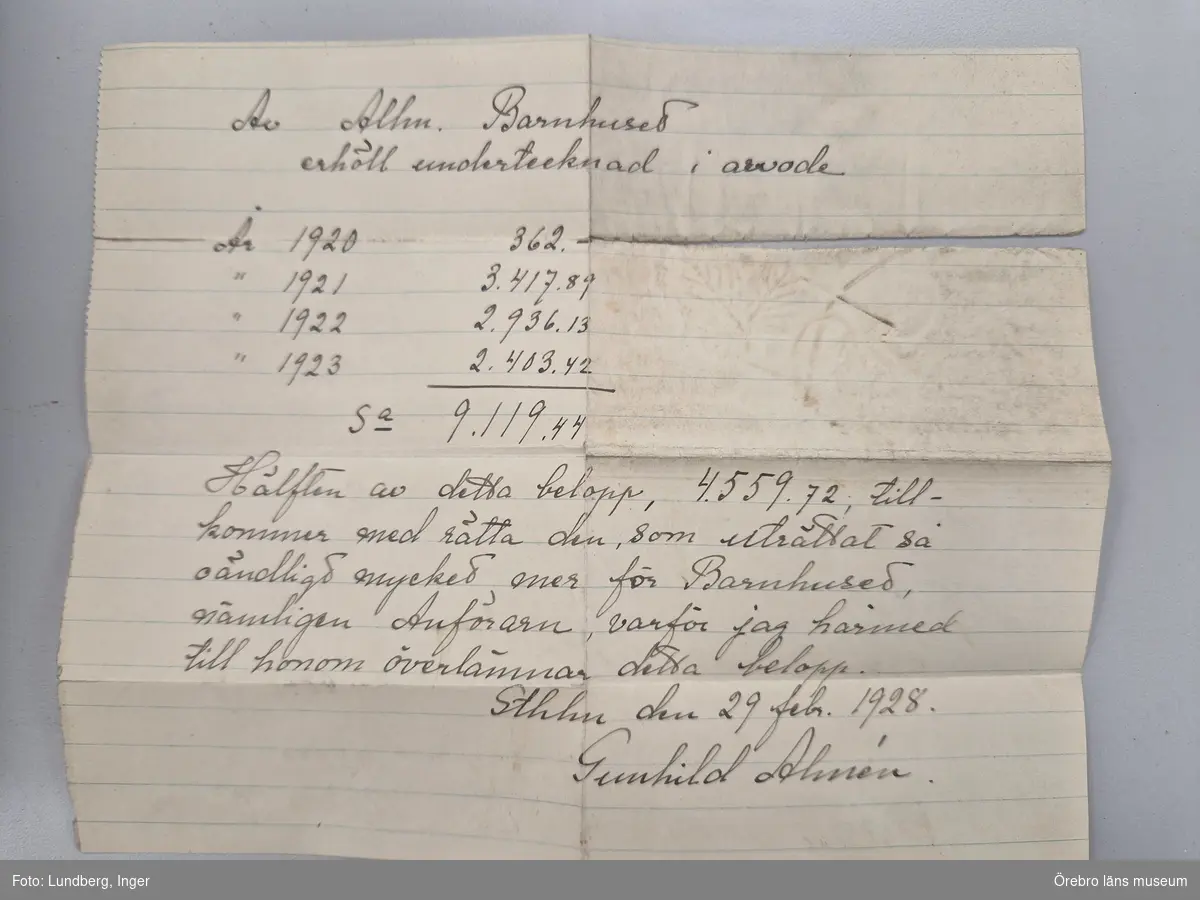 Av Allm. Barnhuset
erhöll undertecknad i arvode
År 1920 362.-
" 1921 3.417.89
" 1922 2.936.13
" 1923 2.403.42
Sa 9.119.44
Hälften av detta belopp, 4.559.72, till-
kommer med rätta den, som uträttat så
oändligt mycket mer för Barnhuset,
nämligen Anföraren, varför jag härmed
till honom överlämnar detta belopp.
Sthlm den 29 febr. 1928.
Gunhild Almén.
Foto: Lundberg, Inger
Örebro läns museum